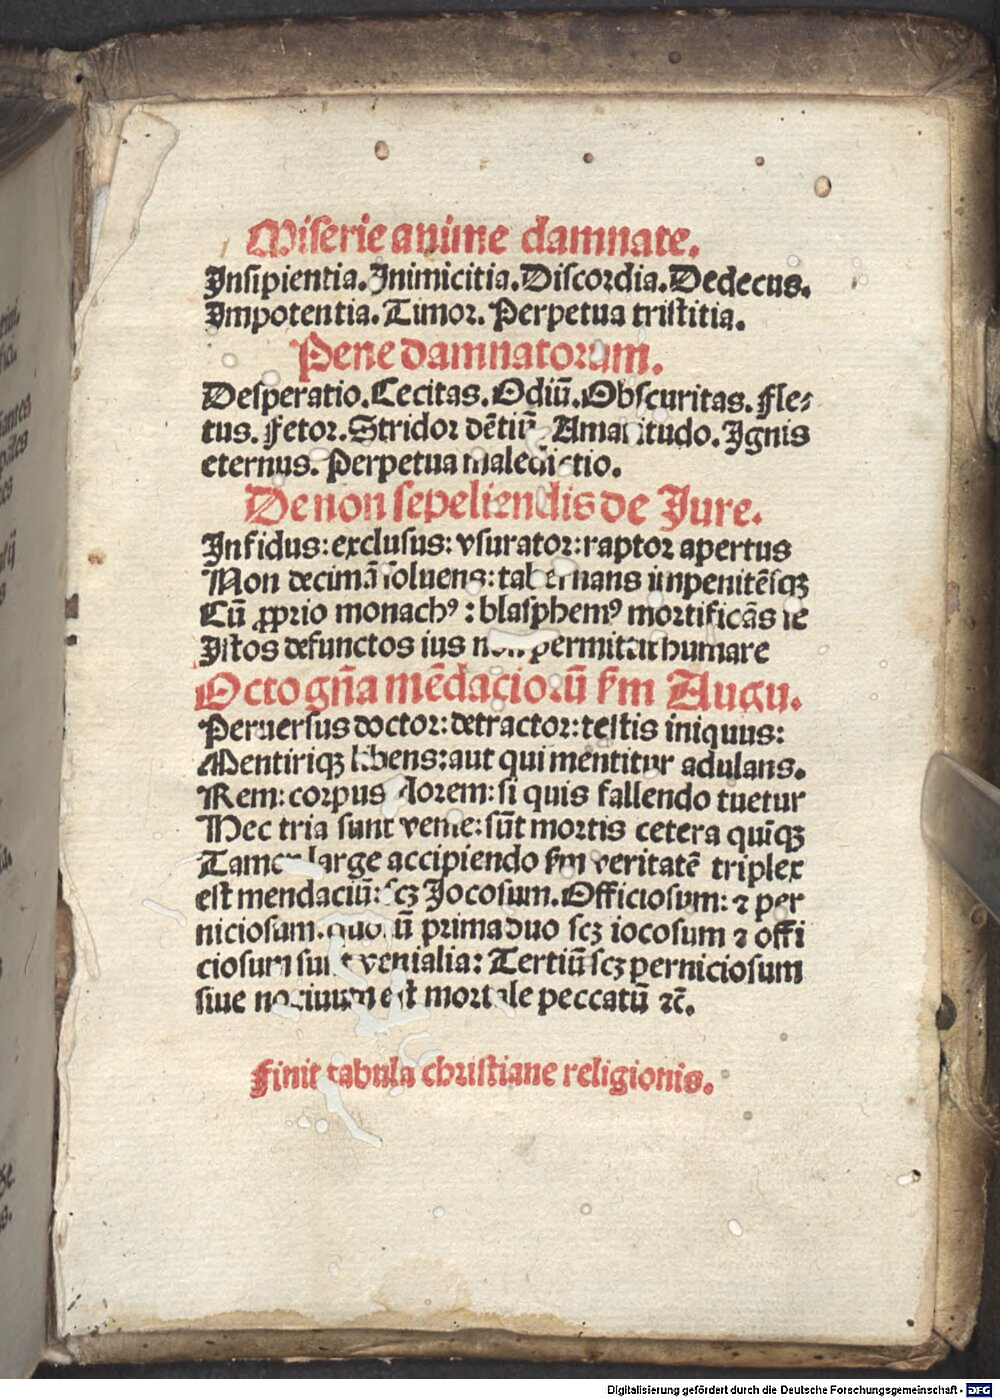 Miserie anime damnate.
Insipientia. Inimicitia. Discordia. Dedecus.
Impotentia. Timor. Perpetua tristitia.
Pene damnatorum.
Desperatio. Cecitas. Odiū. Obscuritas. Fle⸗
tus. Fetor. Stridor dētiū. Amaritudo. Ignis
eternus. Perpetua maledictio.
De non sepeliendis de Jure.
Infidus: exclusus: vsurator: raptor apertus
Non decimā soluens: tabernans impenitēsqꝫ
Cū ꝓprio monachꝰ: blasphemꝰ mortificās se
Istos defunctos ius non permittit humare
Octo gn̄a mēdaciorū ẜm Augu.
Peruersus doctor: detractor: testis iniquus:
Mentiriqꝫ libens: aut qui mentitur adulans.
Rem: corpus florem: si quis fallendo tuetur
Hec tria sunt venie: sūt mortis cetera quīqꝫ
Tamen large accipiendo ẜm veritatē triplex
est mendaciū: scꝫ Jocosum. Officiosum: ⁊ per
niciosam. quorū prima duo scꝫ iocosum ⁊ offi
ciosum sunt venialia: Tertiū scꝫ perniciosum
siue nociuum est mortale peccatū ⁊c̄.
Finit tabula christiane religionis.
Digitalisierung gefördert durch die Deutsche Forschungsgemeinschaft - DFG